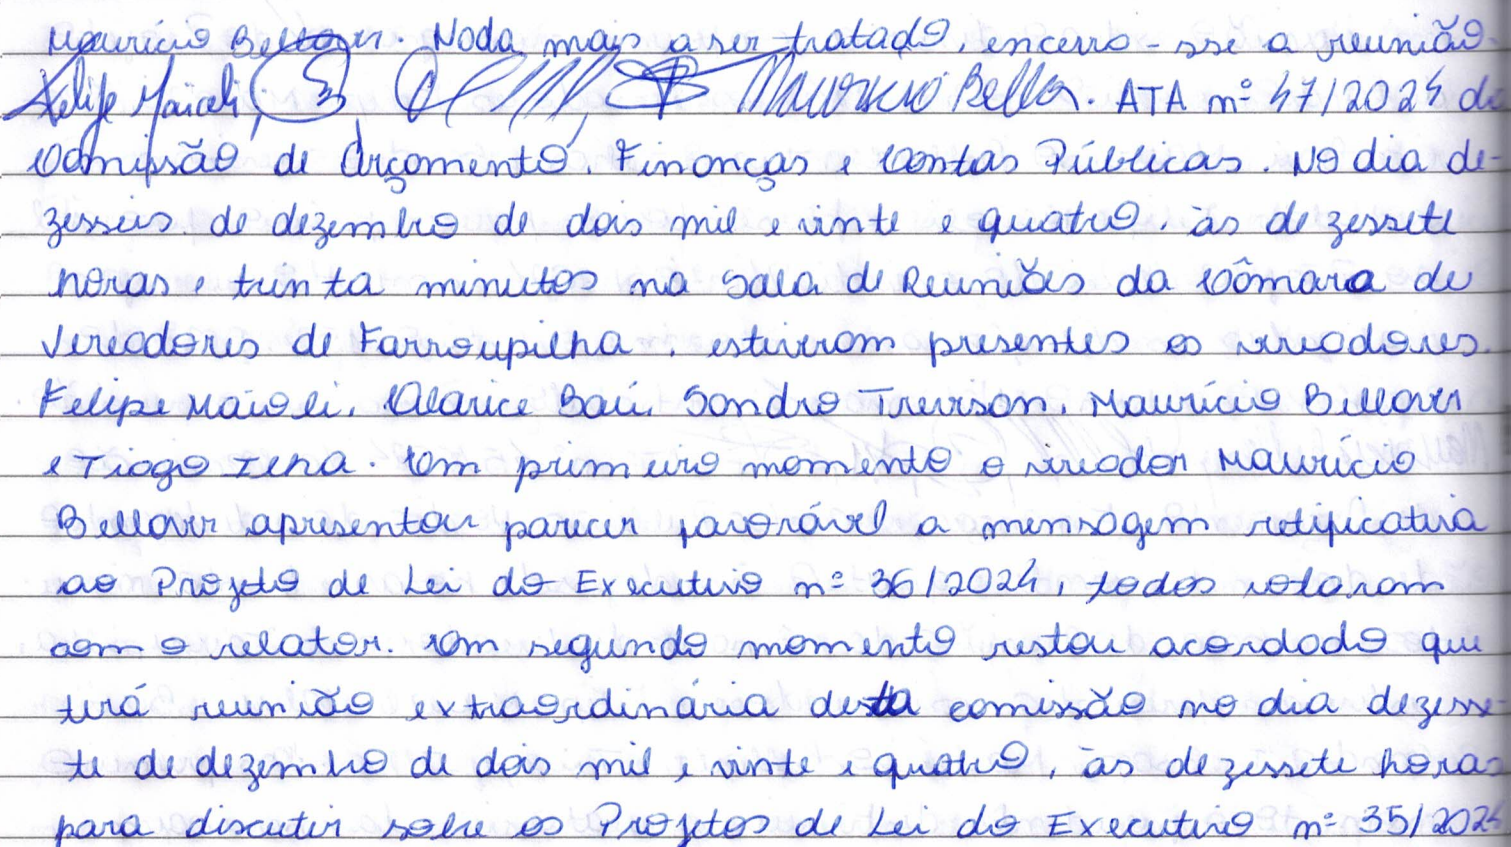 Maurício Bellover. Nada mais a ser tratado, encerro-sse a reunião
Felipe Maioli, Maurício Bellover. ATA nº 47/2024 da
Comissão de Orçamento, Finanças e Contas Públicas. No dia de-
zesseis de dezembro de dois mil e vinte e quatro, às dezessete
horas e trinta minutos na Sala de Reuniões da Câmara de
Vereadores de Farroupilha, estiveram presentes os vereadores.
Felipe Maioli, Clarice Baú, Sandro Trevisan, Maurício Bellover
e Tiago Ilha. Em primeiro momento o vereador Maurício
Bellover apresentou parecer favorável a mensagem retificativa
ao Projeto de Lei do Executivo nº 36/2024, todos votaram
com o relator. Em segundo momento restou acordado que
terá reunião extraordinária desta comissão no dia dezesse-
te de dezembro de dois mil e vinte e quatro, às dezessete horas
para discutir sobre os Projetos de Lei do Executivo nº 35/2024